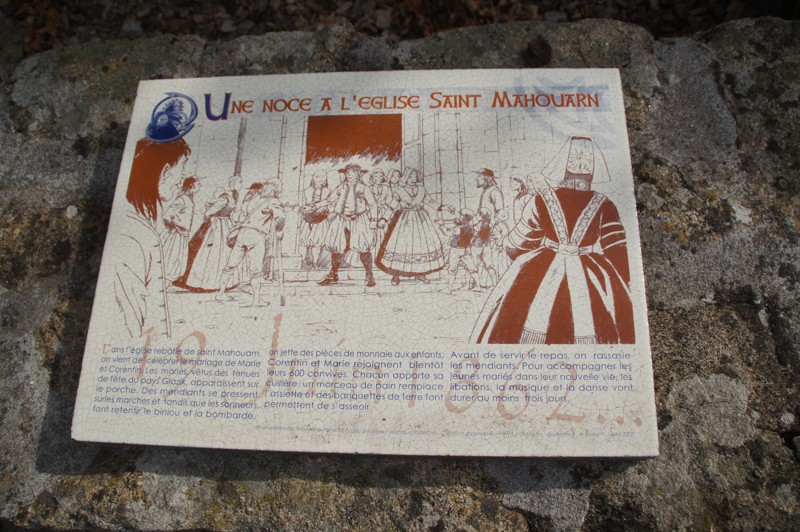 UNE NOCE A L'EGLISE SAINT MAHOUARN
Dans l'église rebâtie de saint Mahouarn,
on vient de célébrer le mariage de Marie
et Corentin. Les mariés, vêtus des tenues
de fête du pays Glazik, apparaissent sur
le porche. Des mendiants se pressent
sur les marches et tandis que les sonneurs
font retentir le biniou et la bombarde,
on jette des pièces de monnaie aux enfants.
Corentin et Marie rejoignent bientôt
leurs 600 convives. Chacun apporte sa
cuillère, un morceau de pain remplace
l'assiette et des banquettes de terre font
permettent de s'asseoir.
Avant de servir le repas, on rassasie
les mendiants. Pour accompagner les
jeunes mariés dans leur nouvelle vie, les
libations, la musique et la danse vont
durer au moins trois jours.